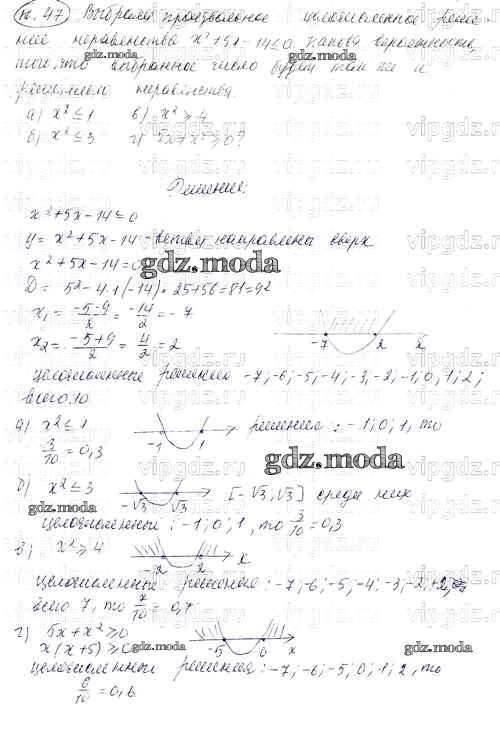 п. 47) Выбрали произвольное целочисленное реше-
ние неравенства x² + 5x - 14 ≤ 0. Какова вероятность
того, что выбранное число будет так же и
решением неравенства.
а) x² ≤ 1 в) x² ≥ 4
б) x² ≤ 3 г) 5x + x² ≥ 0?
Решение:
x² + 5x - 14 ≤ 0
y = x² + 5x - 14 - ветви направлены вверх
x² + 5x - 14 = 0
gdz.moda
D = 5² - 4·1·(-14) = 25 + 56 = 81 = 9²
x₁ = (-5-9)/2 = -14/2 = -7
x₂ = (-5+9)/2 = 4/2 = 2
-7 2 x
целочисленные решения -7; -6; -5; -4; -3; -2; -1; 0; 1; 2;
всего 10
а) x² ≤ 1 -1 1 решения: -1; 0; 1, то
3/10 = 0,3
gdz.moda
б) x² ≤ 3 -√3 √3 [-√3; √3] среди них
gdz.moda
целочисленный: -1; 0; 1, то 3/10 = 0,3
в) x² ≥ 4 -2 2 x
целочисленные решения: -7; -6; -5; -4; -3; -2; +2;
всего 7, то 7/10 = 0,7
г) 5x + x² ≥ 0
x(x+5) ≥ 0 -5 0 x
gdz.moda
целочисленный решения: -7; -6; -5; 0; 1; 2, то
6/10 = 0,6